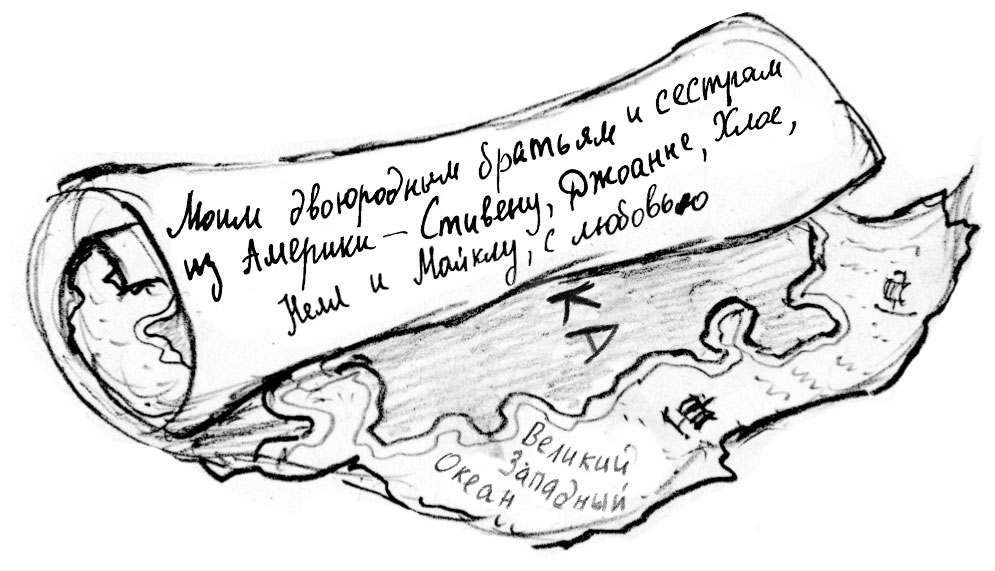 Моим двоюродным братьям и сестрам
из Америки – Стивену, Джоанне, Хлое,
Нелл и Майклу, с любовью
КА
Великий
Западный
Океан